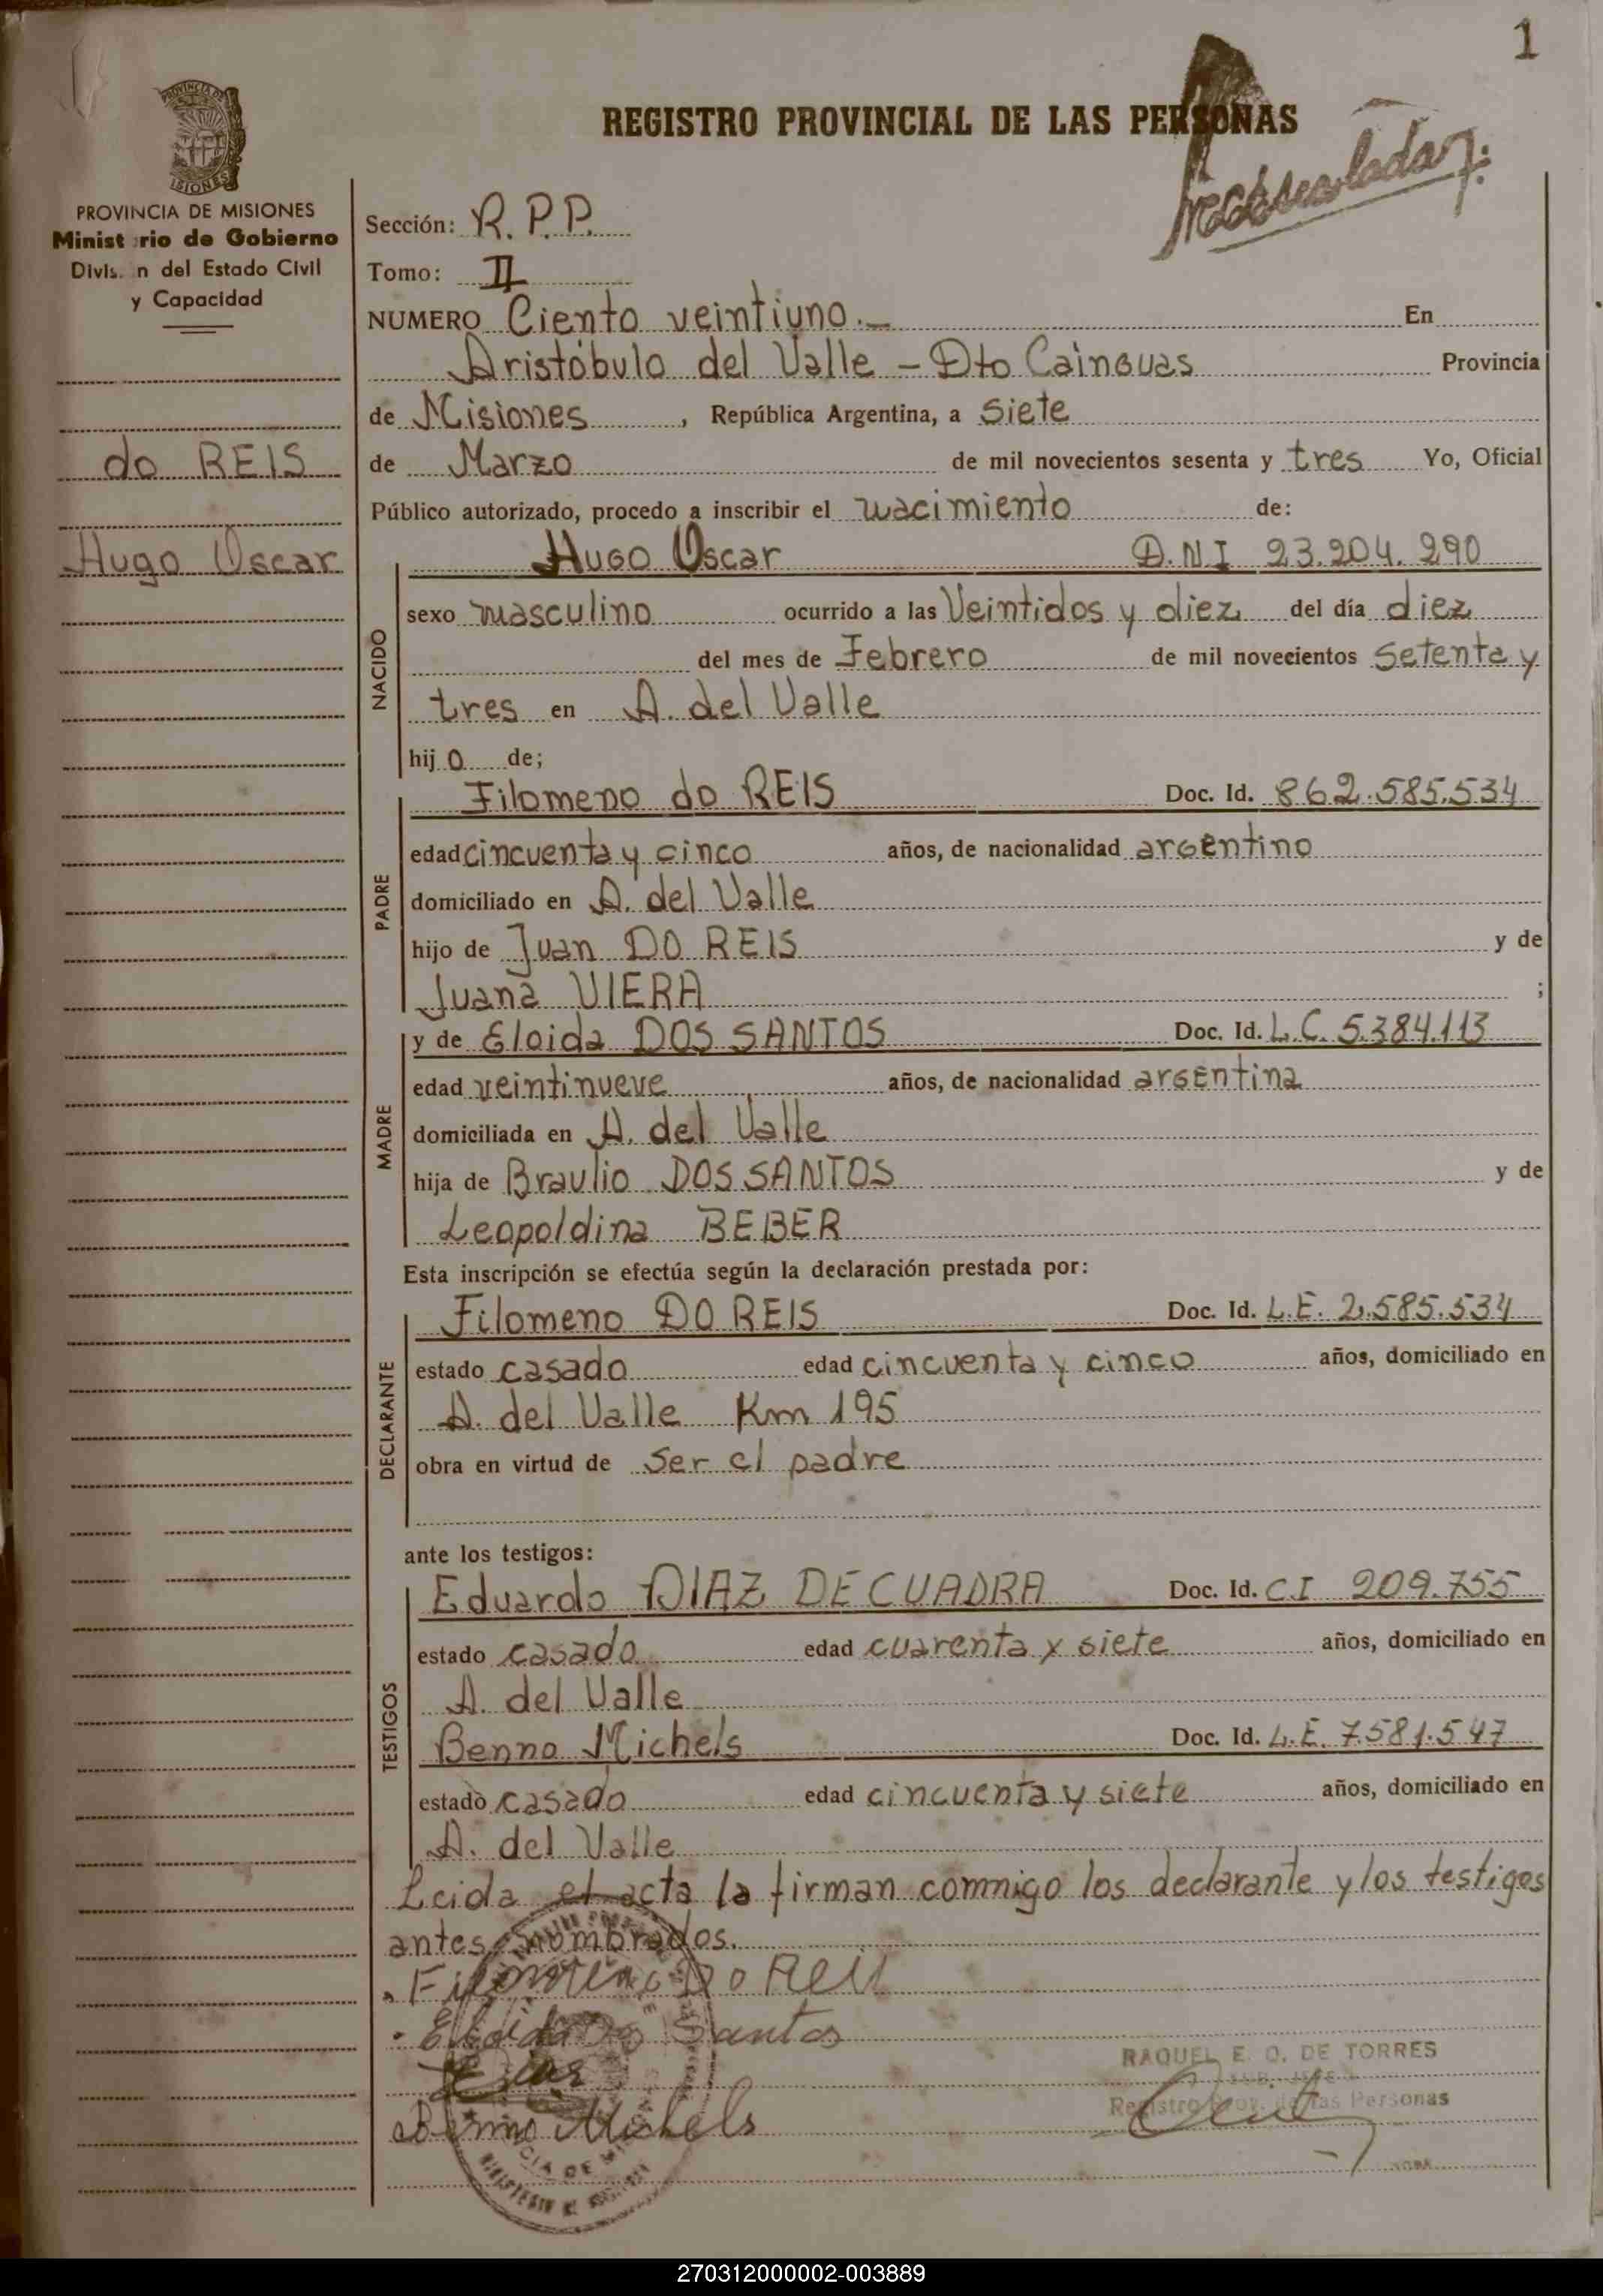 1
REGISTRO PROVINCIAL DE LAS PERSONAS
PROVINCIA DE MISIONES
Minist rio de Gobierno
Divis. n del Estado Civil
y Capacidad
do REIS
Hugo Oscar
Sección: R.P.P.
Tomo: II
NUMERO Ciento veintiuno.— En
Aristóbulo del Valle – Dto Cainguas Provincia
de Misiones, República Argentina, a siete
de Marzo de mil novecientos sesenta y tres Yo, Oficial
Público autorizado, procedo a inscribir el nacimiento de:
NACIDO
Hugo Oscar D.N.I 23.204.290
sexo masculino ocurrido a las Veintidos y diez del día diez
del mes de Febrero de mil novecientos setenta y
tres en A. del Valle
hijo de;
PADRE
Filomeno do REIS Doc. Id. 862.585.534
edad cincuenta y cinco años, de nacionalidad argentino
domiciliado en A. del Valle
hijo de Juan DO REIS y de
Juana VIERA ;
MADRE
y de Eloida DOS SANTOS Doc. Id. L.C. 5.384.113
edad veintinueve años, de nacionalidad argentina
domiciliada en A. del Valle
hija de Braulio DOS SANTOS y de
Leopoldina BEBER
Esta inscripción se efectúa según la declaración prestada por:
DECLARANTE
Filomeno DO REIS Doc. Id. L.E. 2.585.534
estado casado edad cincuenta y cinco años, domiciliado en
A. del Valle Km 195
obra en virtud de ser el padre
ante los testigos:
TESTIGOS
Eduardo DIAZ DE CUADRA Doc. Id. C.I 209.755
estado casado edad cuarenta y siete años, domiciliado en
A. del Valle
Benno Michels Doc. Id. L.E. 7.581.547
estado casado edad cincuenta y siete años, domiciliado en
A. del Valle
Leida el acta la firman commigo los declarante y los testigos
antes nombrados.
Filomeno Do Reis
Eloida Dos Santos
Benno Michels
RAQUEL E. O. DE TORRES
Registro Prov. de las Personas
270312000002-003889